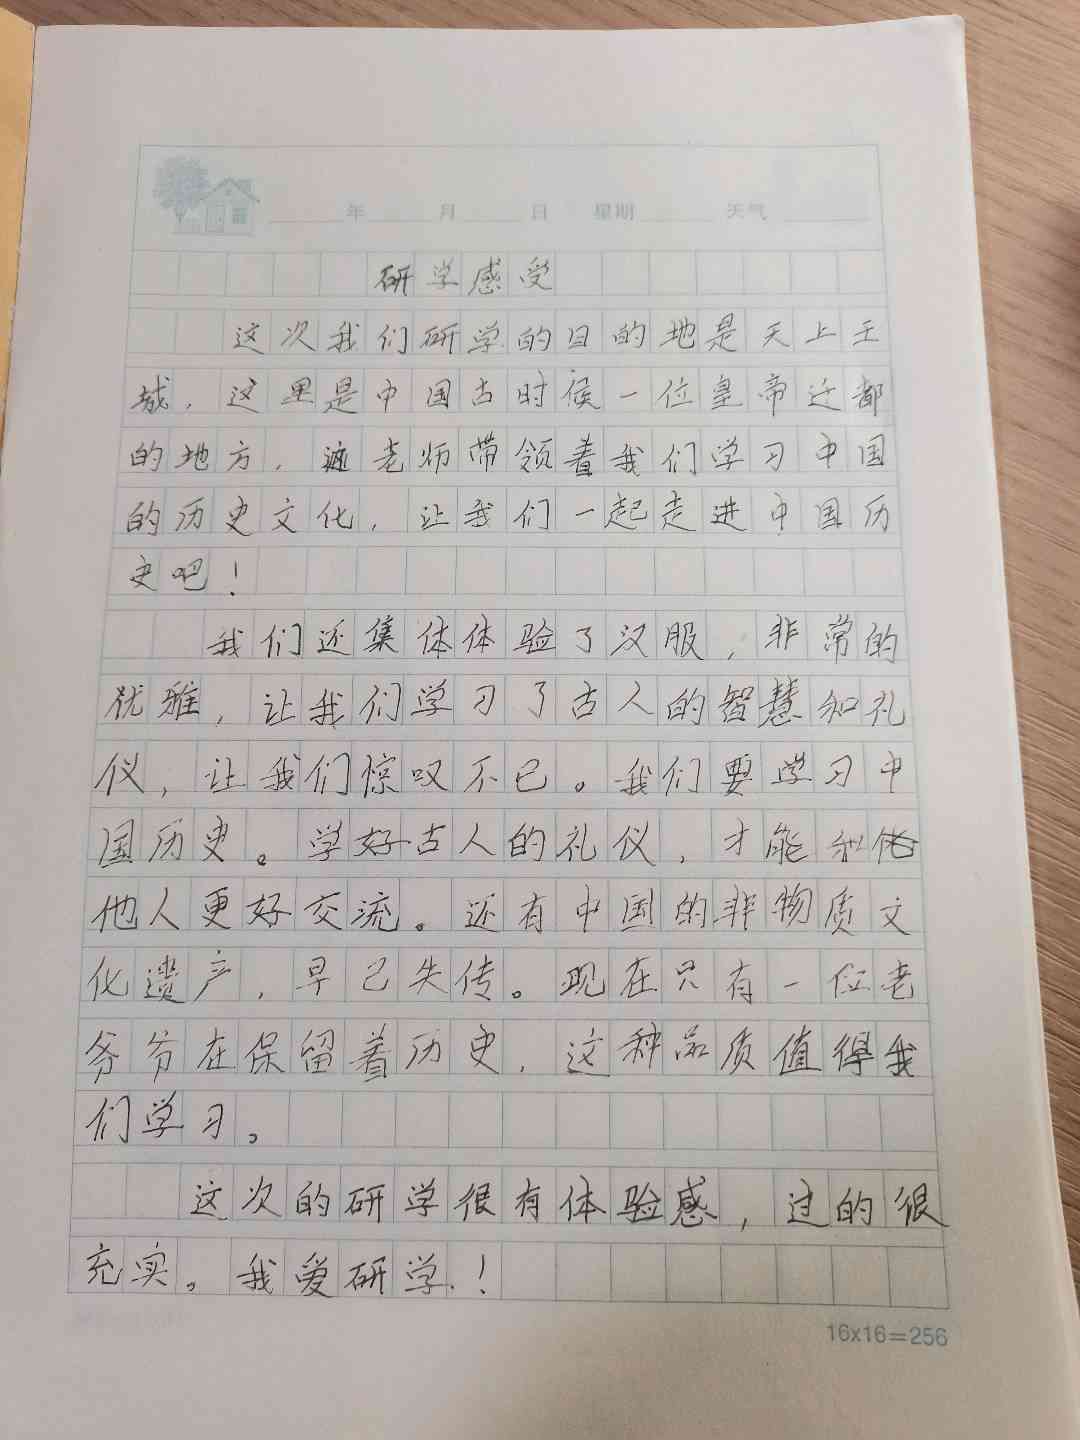 年 月 日 星期 天气
研学感受
这次我们研学的目的地是天上王
城，这里是中国古时候一位皇帝迁都
的地方，老师带领着我们学习中国
的历史文化，让我们一起走进中国历
史吧！
我们还集体体验了汉服，非常的
优雅，让我们学习了古人的智慧和礼
仪，让我们惊叹不已。我们要学习中
国历史。学好古人的礼仪，才能和
他人更好交流。还有中国的非物质文
化遗产，早已失传。现在只有一位老
爷爷在保留着历史，这种品质值得我
们学习。
这次的研学很有体验感，过的很
充实。我爱研学！
16x16=256